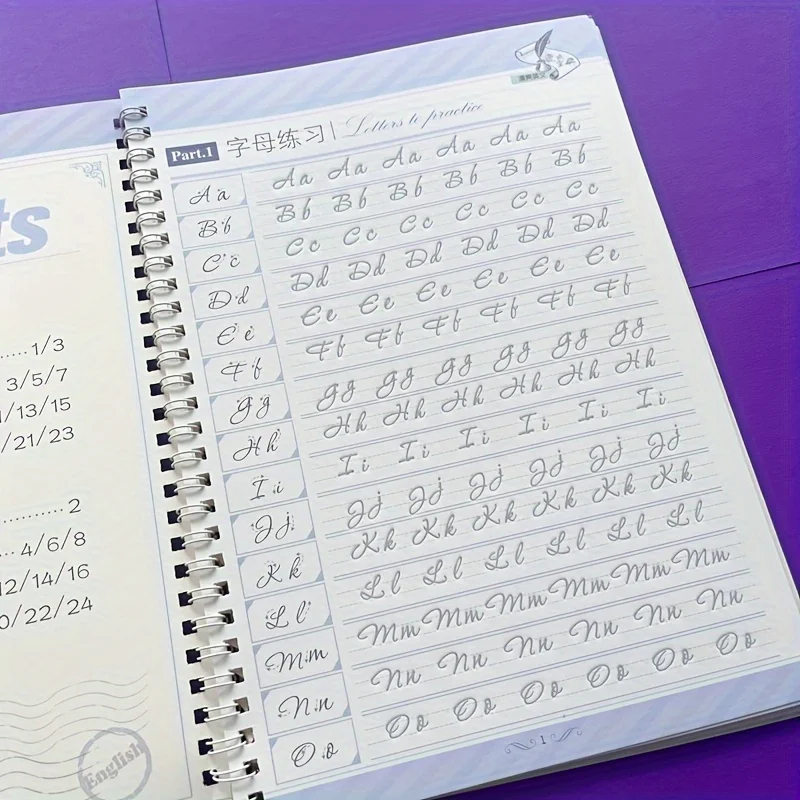 ts
1/3
3/5/7
/13/15
/21/23
2
4/6/8
12/14/16
0/22/24
English
Part.1 字母练习 Letters to practice
Aa Aa Aa Aa Aa Aa Aa
Bb Bb Bb Bb Bb Bb Bb
Cc Cc Cc Cc Cc Cc Cc
Dd Dd Dd Dd Dd Dd Dd
Ee Ee Ee Ee Ee Ee Ee
Ff Ff Ff Ff Ff Ff Ff
Gg Gg Gg Gg Gg Gg Gg
Hh Hh Hh Hh Hh Hh Hh
Ii Ii Ii Ii Ii Ii Ii
Jj Jj Jj Jj Jj Jj Jj
Kk Kk Kk Kk Kk Kk Kk
Ll Ll Ll Ll Ll Ll Ll
Mm Mm Mm Mm Mm Mm Mm
Nn Nn Nn Nn Nn Nn Nn
Oo Oo Oo Oo Oo Oo Oo
1